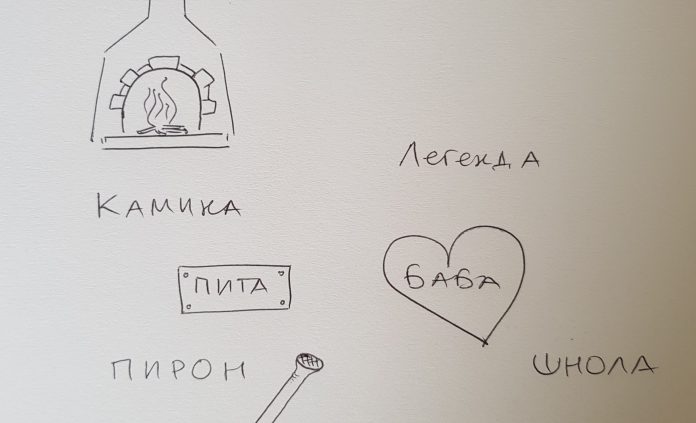 Легенда
КАМИНА
ПИТА
БАБА
ПИРОН
ШНОЛА